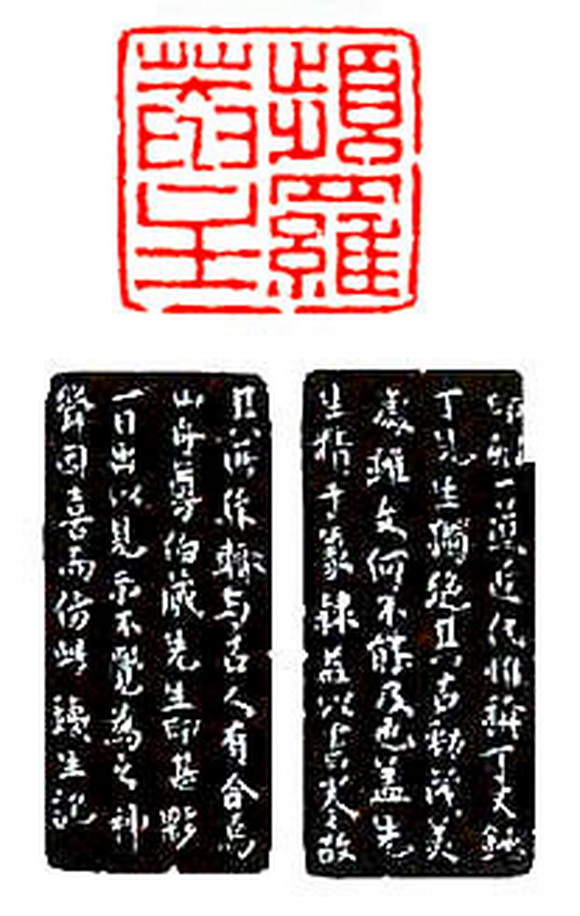 頻羅
菴主
一藝近代惟稱丁丈鈍
丁先生獨絕其古勁茂美
處雖文何不能及也蓋先
生精于篆隸益以 故
其所作輒與古人有合焉
山舟尊伯藏先生印甚夥
一日出以見示不覺為之神
聳因喜而仿此鐵生記